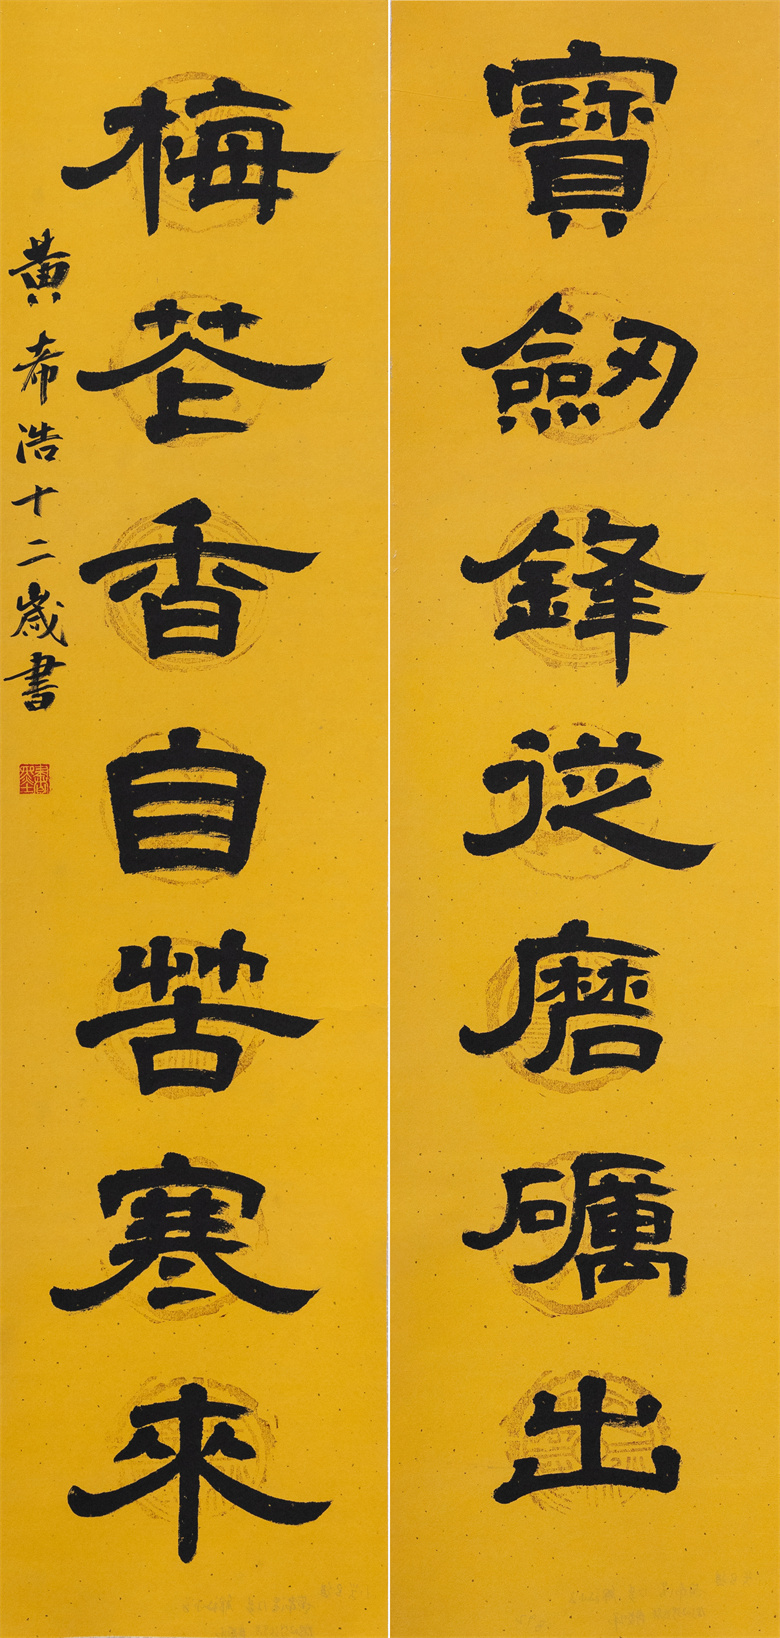 寶劒鋒從磨礪出
梅花香自苦寒來
黄希浩十二歲書